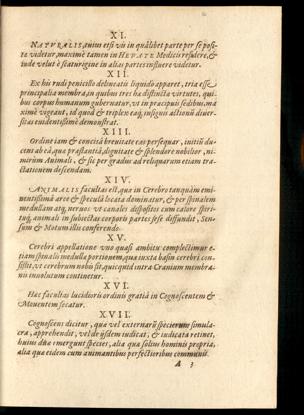 XI.
NATURALIS, cuius etsi vis in quâlibet parte per se posi-
te videtur, maximè tamen in HEPATE Medicis residere, &
inde velut è scaturigine in alias partes influere videtur.
XII.
Ex his rudi penicillo delineatis liquidò apparet, tria esse
principalia membra, in quibus tres hæ distinctæ virtutes, qui-
bus corpus humanum gubernatur, ut in præcipuis sedibus, ma-
ximè vigeant, id quod & triplex eaq; insignis actionū diver-
sitas evidentissimè demonstrat.
XIII.
Ordine iam & concisâ brevitate eas persequar, initiū du-
cens ab eâ, quæ præstantiâ, dignitate & splendore nobilior, ni-
mirùm Animali, & sic per gradus ad reliquarum etiam tra-
ctationem descendam.
XIV.
ANIMALIS facultas est, quæ in Cerebro tanquàm emi-
nentissimâ arce & specula locata dominatur, & per spinalem
medullam atq; nervos vt canales dispositos cum calore spiri-
tuq; animali in subiectas corporis partes sese diffundit, Sen-
sum & Motum illis conferendo.
XV.
Cerebri appellatione vno quasi ambitu complectimur e-
tiam spinalis medullæ portionem, quæ iuxta basin cerebri con-
sistit, vt cerebrum nobis sit, quicquid intra Cranium membra-
nis involutum continetur.
XVI.
Hæc facultas lucidioris ordinis gratiâ in Cognoscentem &
Moventem secatur.
XVII.
Cognoscens dicitur, quæ vel externarū specierum simula-
cra, apprehendit, vel de iisdem iudicat, & iudicata retinet,
huius duæ emergunt species, alia quæ solius hominis propria,
alia quæ eidem cum animantibus perfectioribus communis.
A 3